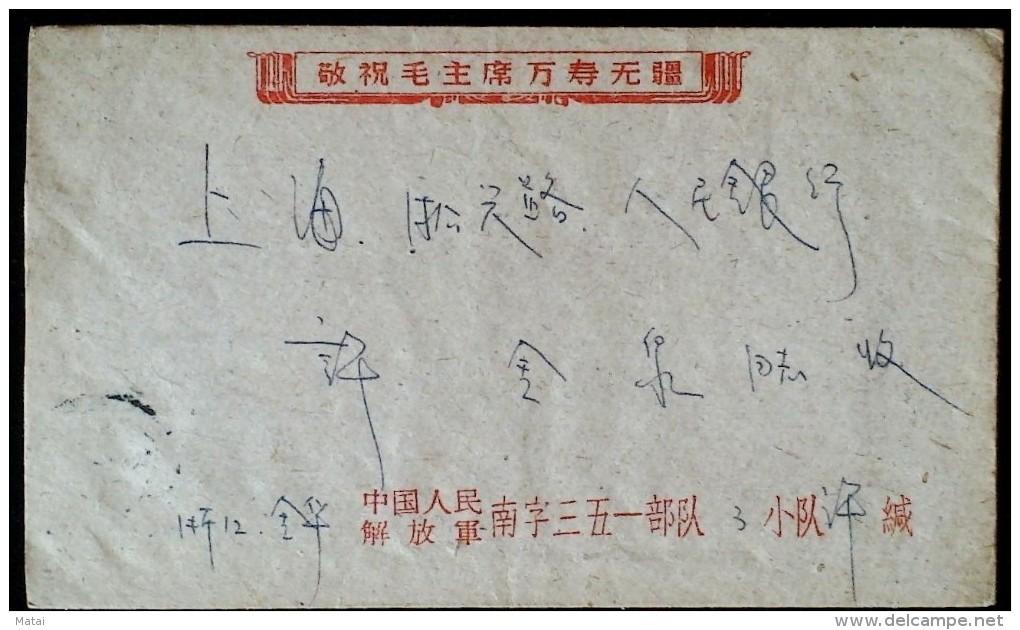 敬祝毛主席万寿无疆
上海. 路. 人民銀行.
許 金泉 同志 收
12. 金华 中国人民解放軍 南字三五一部队 3 小队 许 缄
Matai
delcampe.net